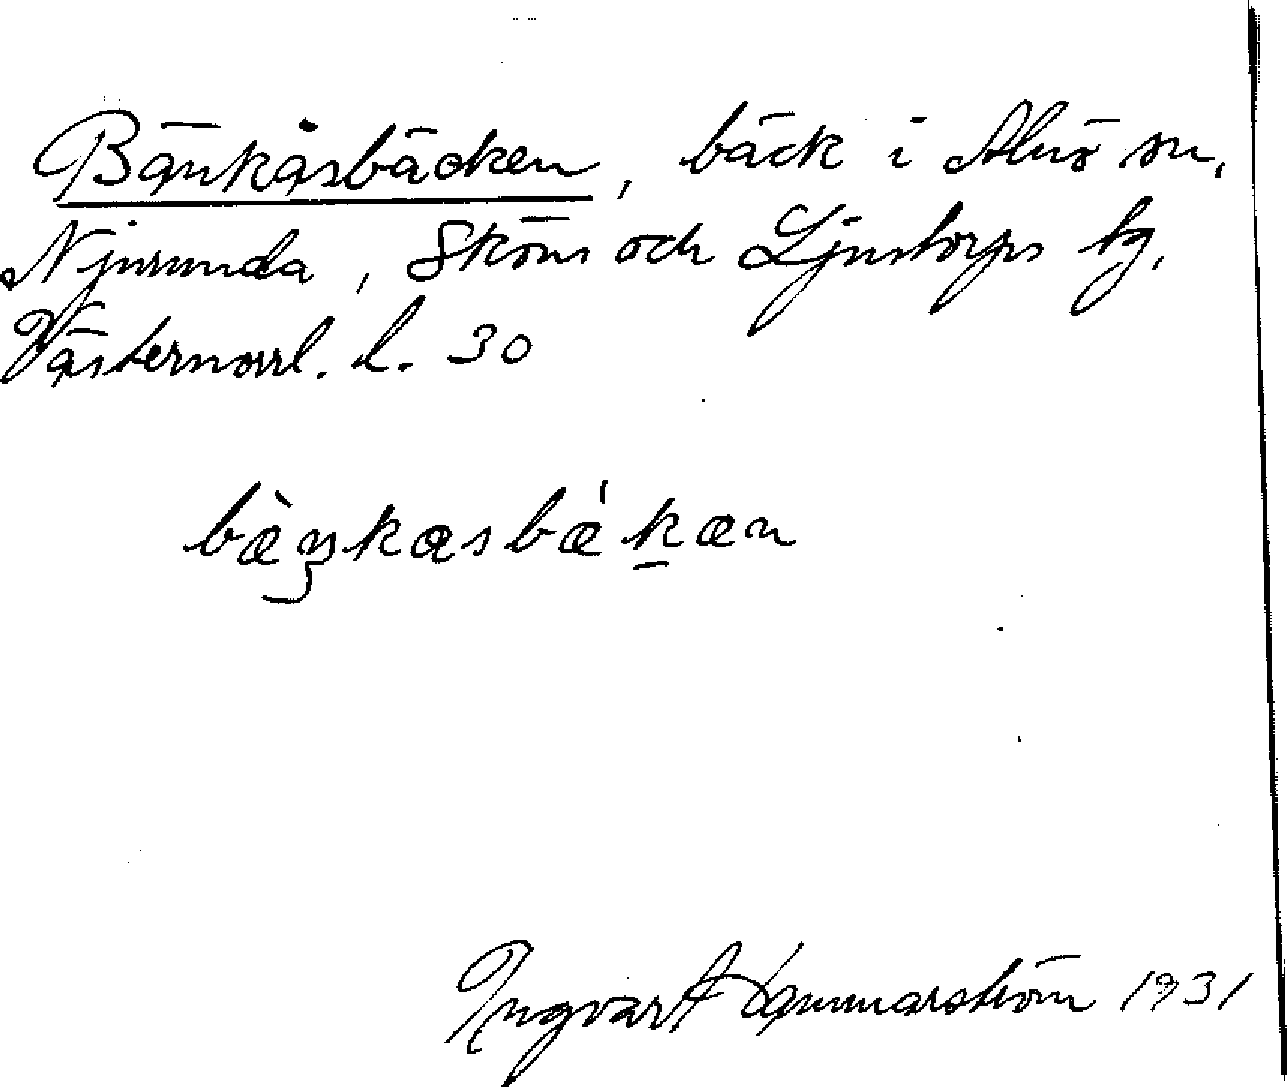 Bänkåsbäcken, bäck i Alnö sn,
Njurunda, Sköns och Ljustorps tg,
Västernorrl. l. 30
bæ̀ŋkasbǽkæn
Ingvar Hammarström 1931